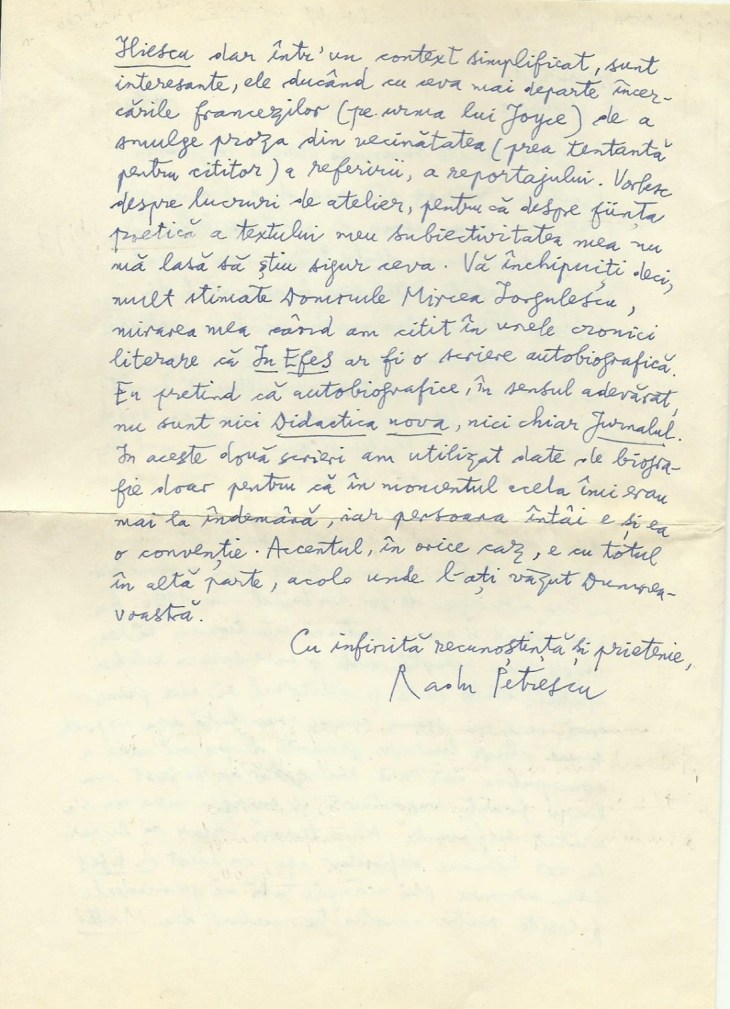 Iliescu dar într'un context simplificat, sunt
interesante, ele ducând cu ceva mai departe încer-
cările francezilor (pe urma lui Joyce) de a
smulge proza din vecinătatea (prea tentantă
pentru cititor) a referirii, a reportajului. Vorbesc
despre lucruri de atelier, pentru că despre ființa
poetică a textului meu subiectivitatea mea nu
mă lasă să știu sigur ceva. Vă închipuiți deci,
mult stimate Domnule Mircea Iorgulescu,
mirarea mea când am citit în unele cronici
literare că In Efes ar fi o scriere autobiografică.
Eu pretind că autobiografice, în sensul adevărat,
nu sunt nici Didactica nova, nici chiar Jurnalul.
In aceste două scrieri am utilizat date de biogra-
fie doar pentru că în momentul acela îmi erau
mai la îndemână, iar persoana întâi e și ea
o convenție. Accentul, în orice caz, e cu totul
în altă parte, acolo unde l-ați văzut Dumnea-
voastră.
Cu infinită recunoștință și prietenie,
Radu Petrescu